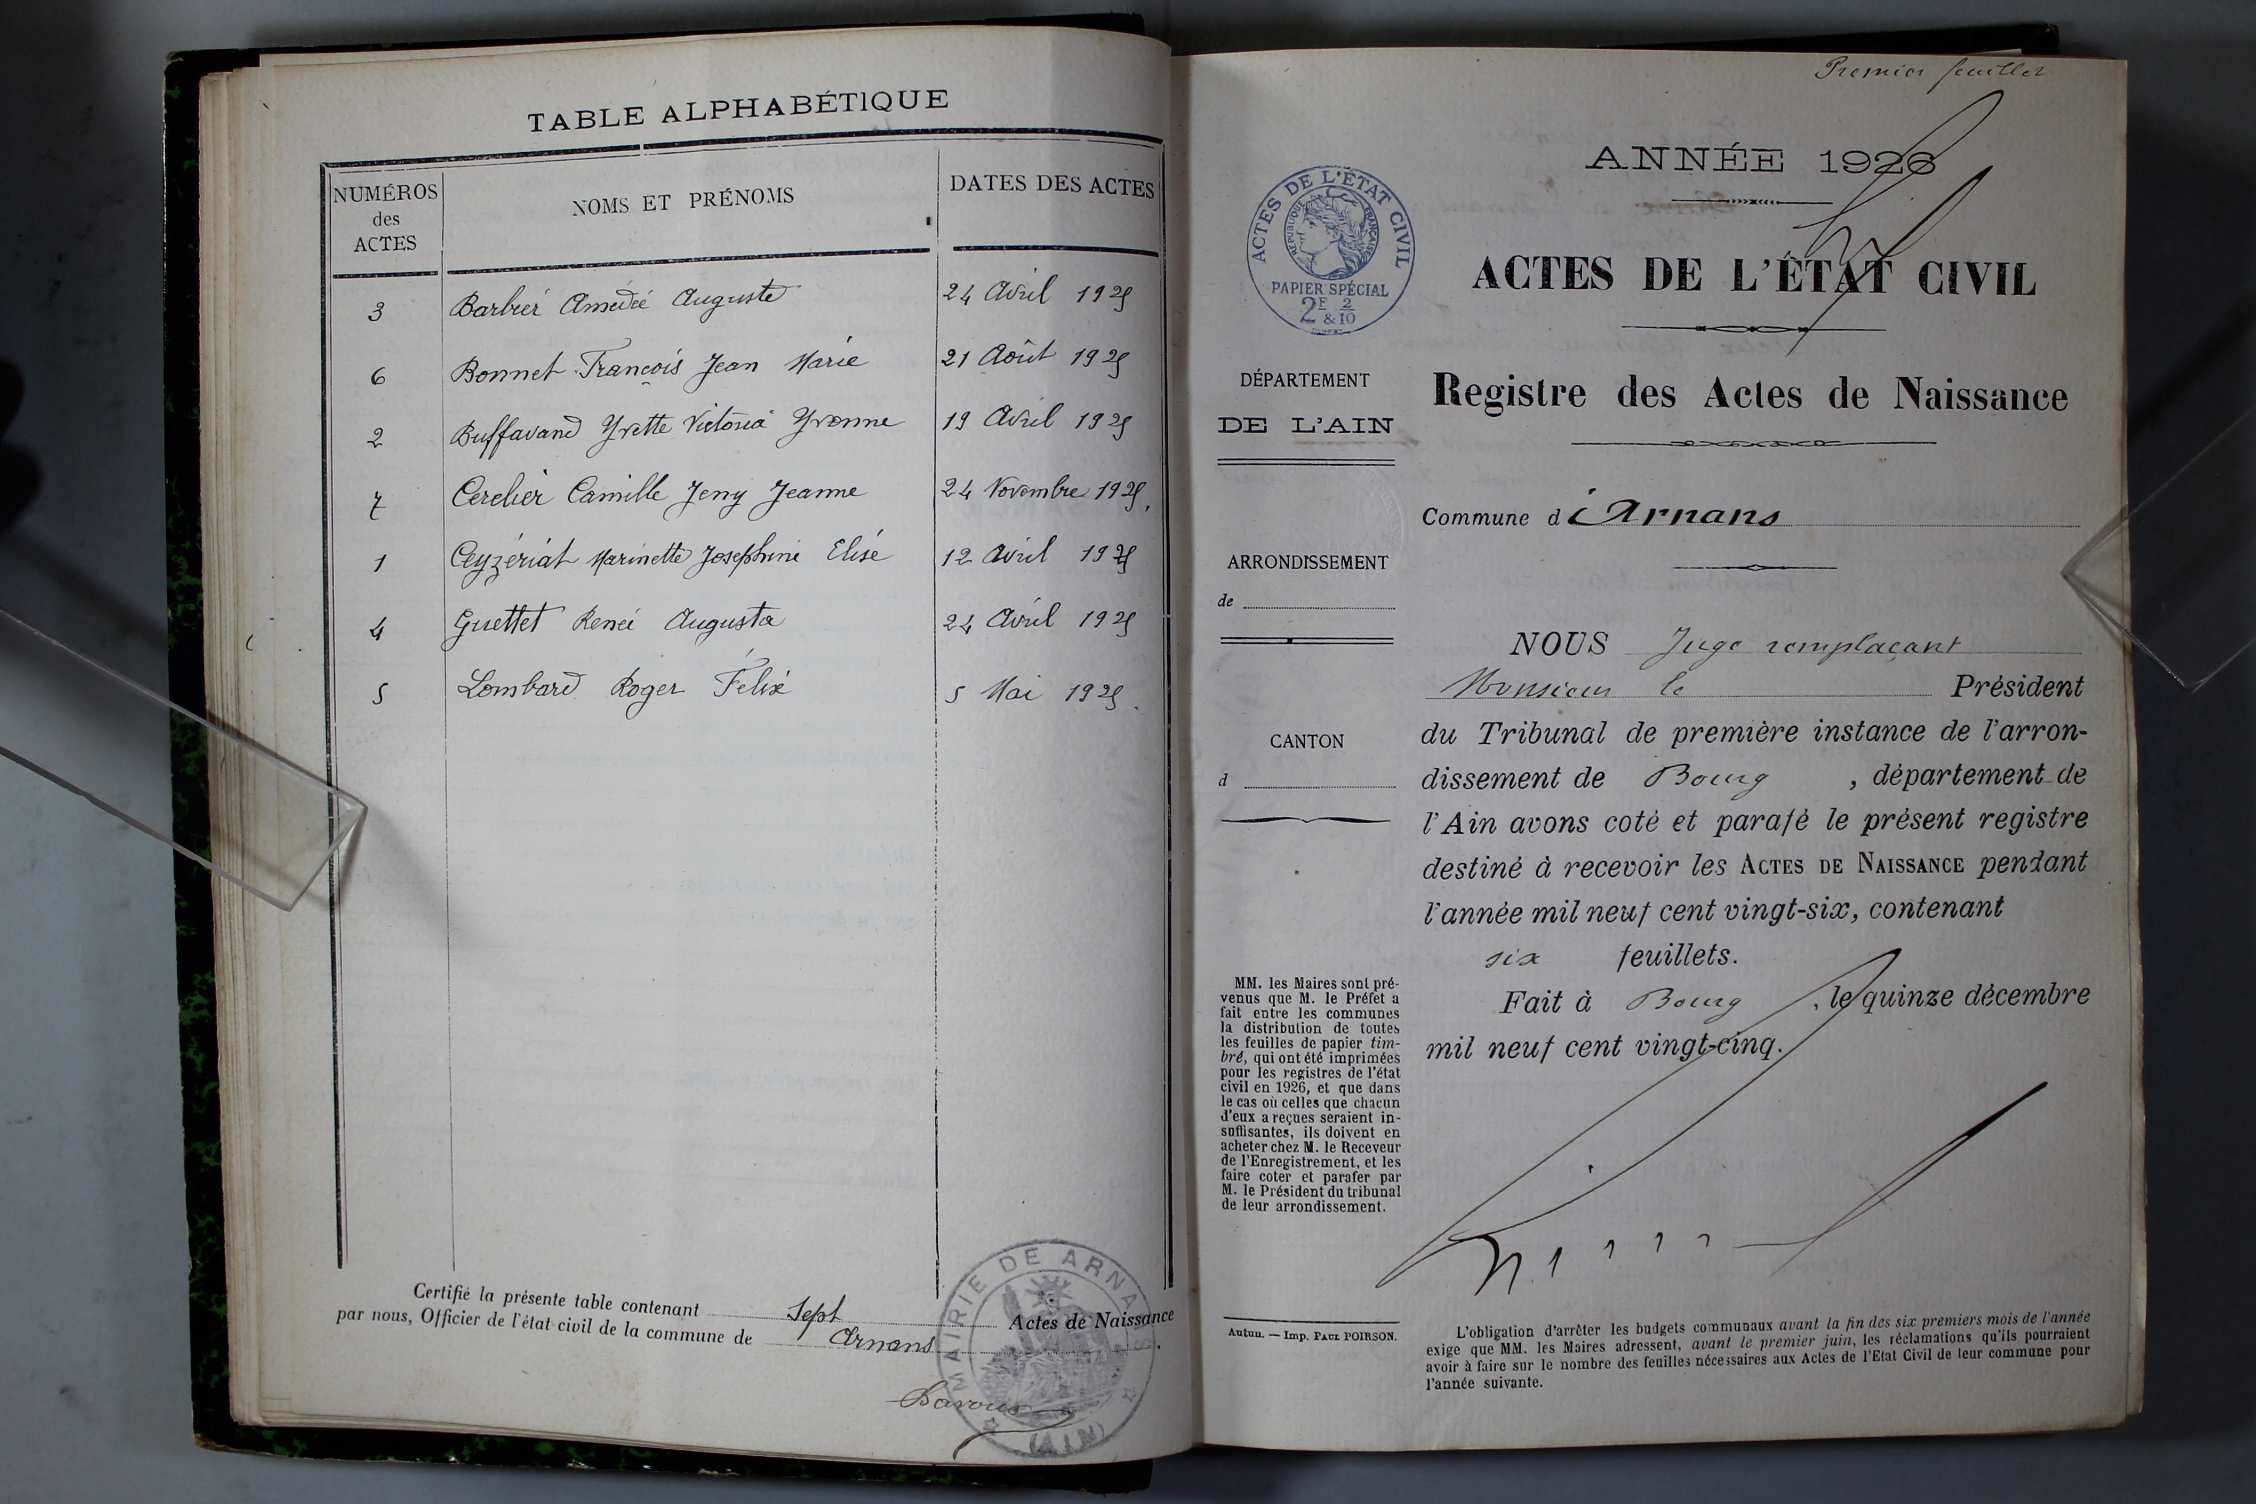 TABLE ALPHABÉTIQUE
NUMÉROS des ACTES
NOMS ET PRÉNOMS
DATES DES ACTES
3 Barbier Amédée Auguste 24 Avril 1925
6 Bonnet François Jean Marie 21 Août 1925
2 Buffavand Yvette Victoria Yvonne 19 Avril 1925
7 Cerclier Camille Jeny Jeanne 24 Novembre 1925.
1 Ceyzériat Marinette Joséphine Elise 12 Avril 1925
4 Guettet Renée Augusta 24 Avril 1925
5 Lombard Roger Félix 5 Mai 1925.
Certifié la présente table contenant Sept Actes de Naissance
par nous, Officier de l'état-civil de la commune de Arnans.
MAIRIE DE ARNANS
(AIN)
Premier feuillet
ANNÉE 1926
ACTES DE L'ÉTAT CIVIL
RÉPUBLIQUE FRANÇAISE
PAPIER SPÉCIAL
2F 2
& 10
ACTES DE L'ÉTAT CIVIL
Registre des Actes de Naissance
DÉPARTEMENT
DE L'AIN
Commune d'Arnans
ARRONDISSEMENT
de
CANTON
d
NOUS Juge remplaçant
Monsieur le Président
du Tribunal de première instance de l'arron-
dissement de Bourg, département de
l'Ain avons coté et parafé le présent registre
destiné à recevoir les ACTES DE NAISSANCE pendant
l'année mil neuf cent vingt-six, contenant
six feuillets.
Fait à Bourg, le quinze décembre
mil neuf cent vingt-cinq.
MM. les Maires sont pré-
venus que M. le Préfet a
fait entre les communes
la distribution de toutes
les feuilles de papier tim-
bré, qui ont été imprimées
pour les registres de l'état
civil en 1926, et que dans
le cas où celles que chacun
d'eux a reçues seraient in-
suffisantes, ils doivent en
acheter chez M. le Receveur
de l'Enregistrement, et les
faire coter et parafer par
M. le Président du tribunal
de leur arrondissement.
Autun. — Imp. PAUL POIRSON.
L'obligation d'arrêter les budgets communaux avant la fin des six premiers mois de l'année
exige que MM. les Maires adressent, avant le premier juin, les réclamations qu'ils pourraient
avoir à faire sur le nombre des feuilles nécessaires aux Actes de l'Etat Civil de leur commune pour
l'année suivante.